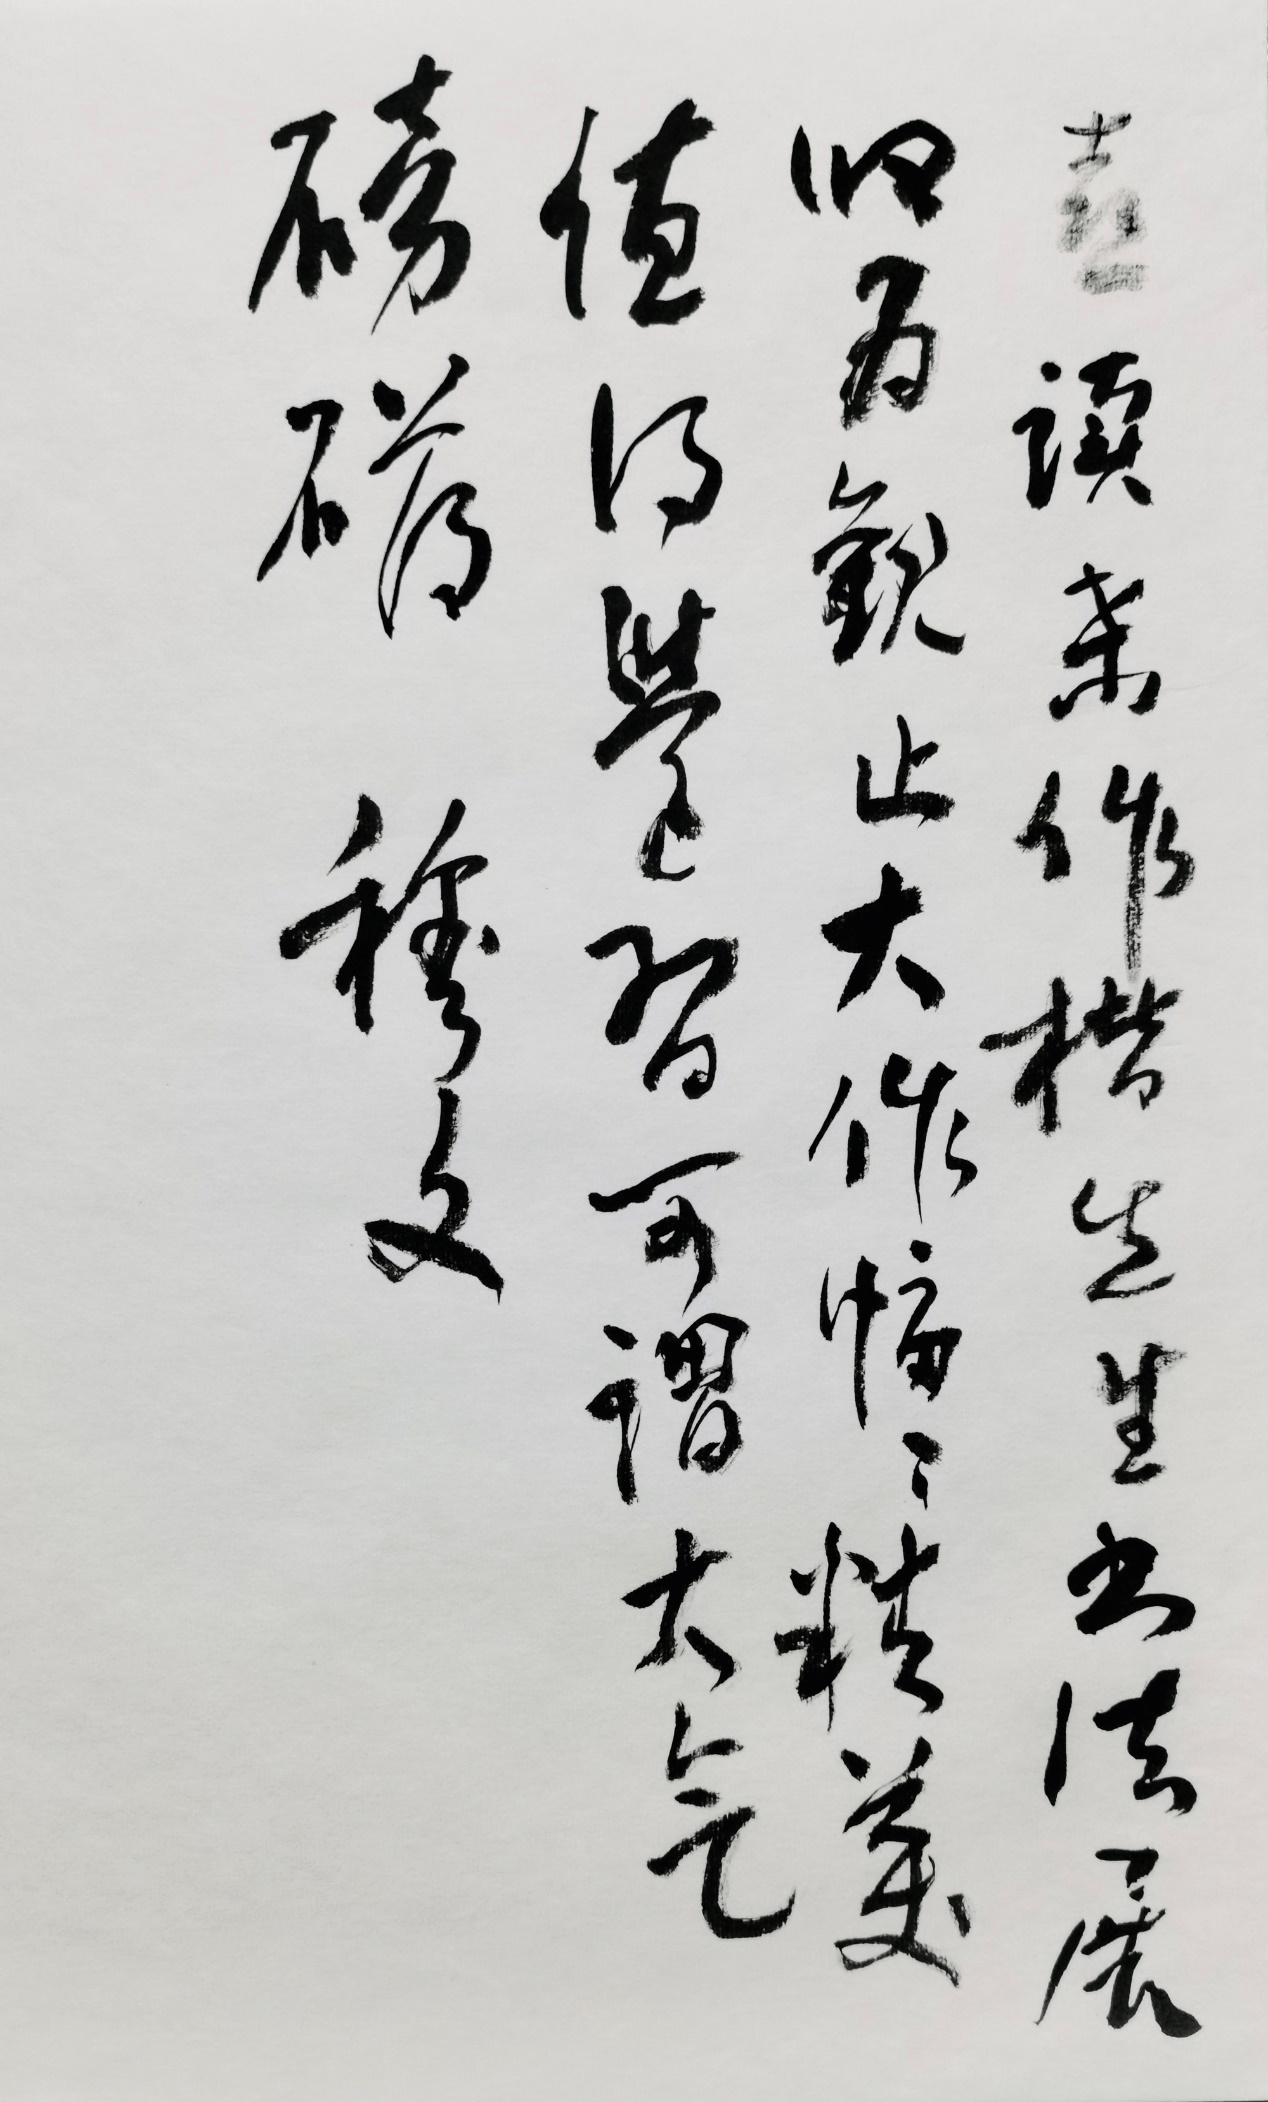 喜读素作楷先生书法展
叹为觀止大作幅〻精美
值得學习可謂大气
磅礴 穆文